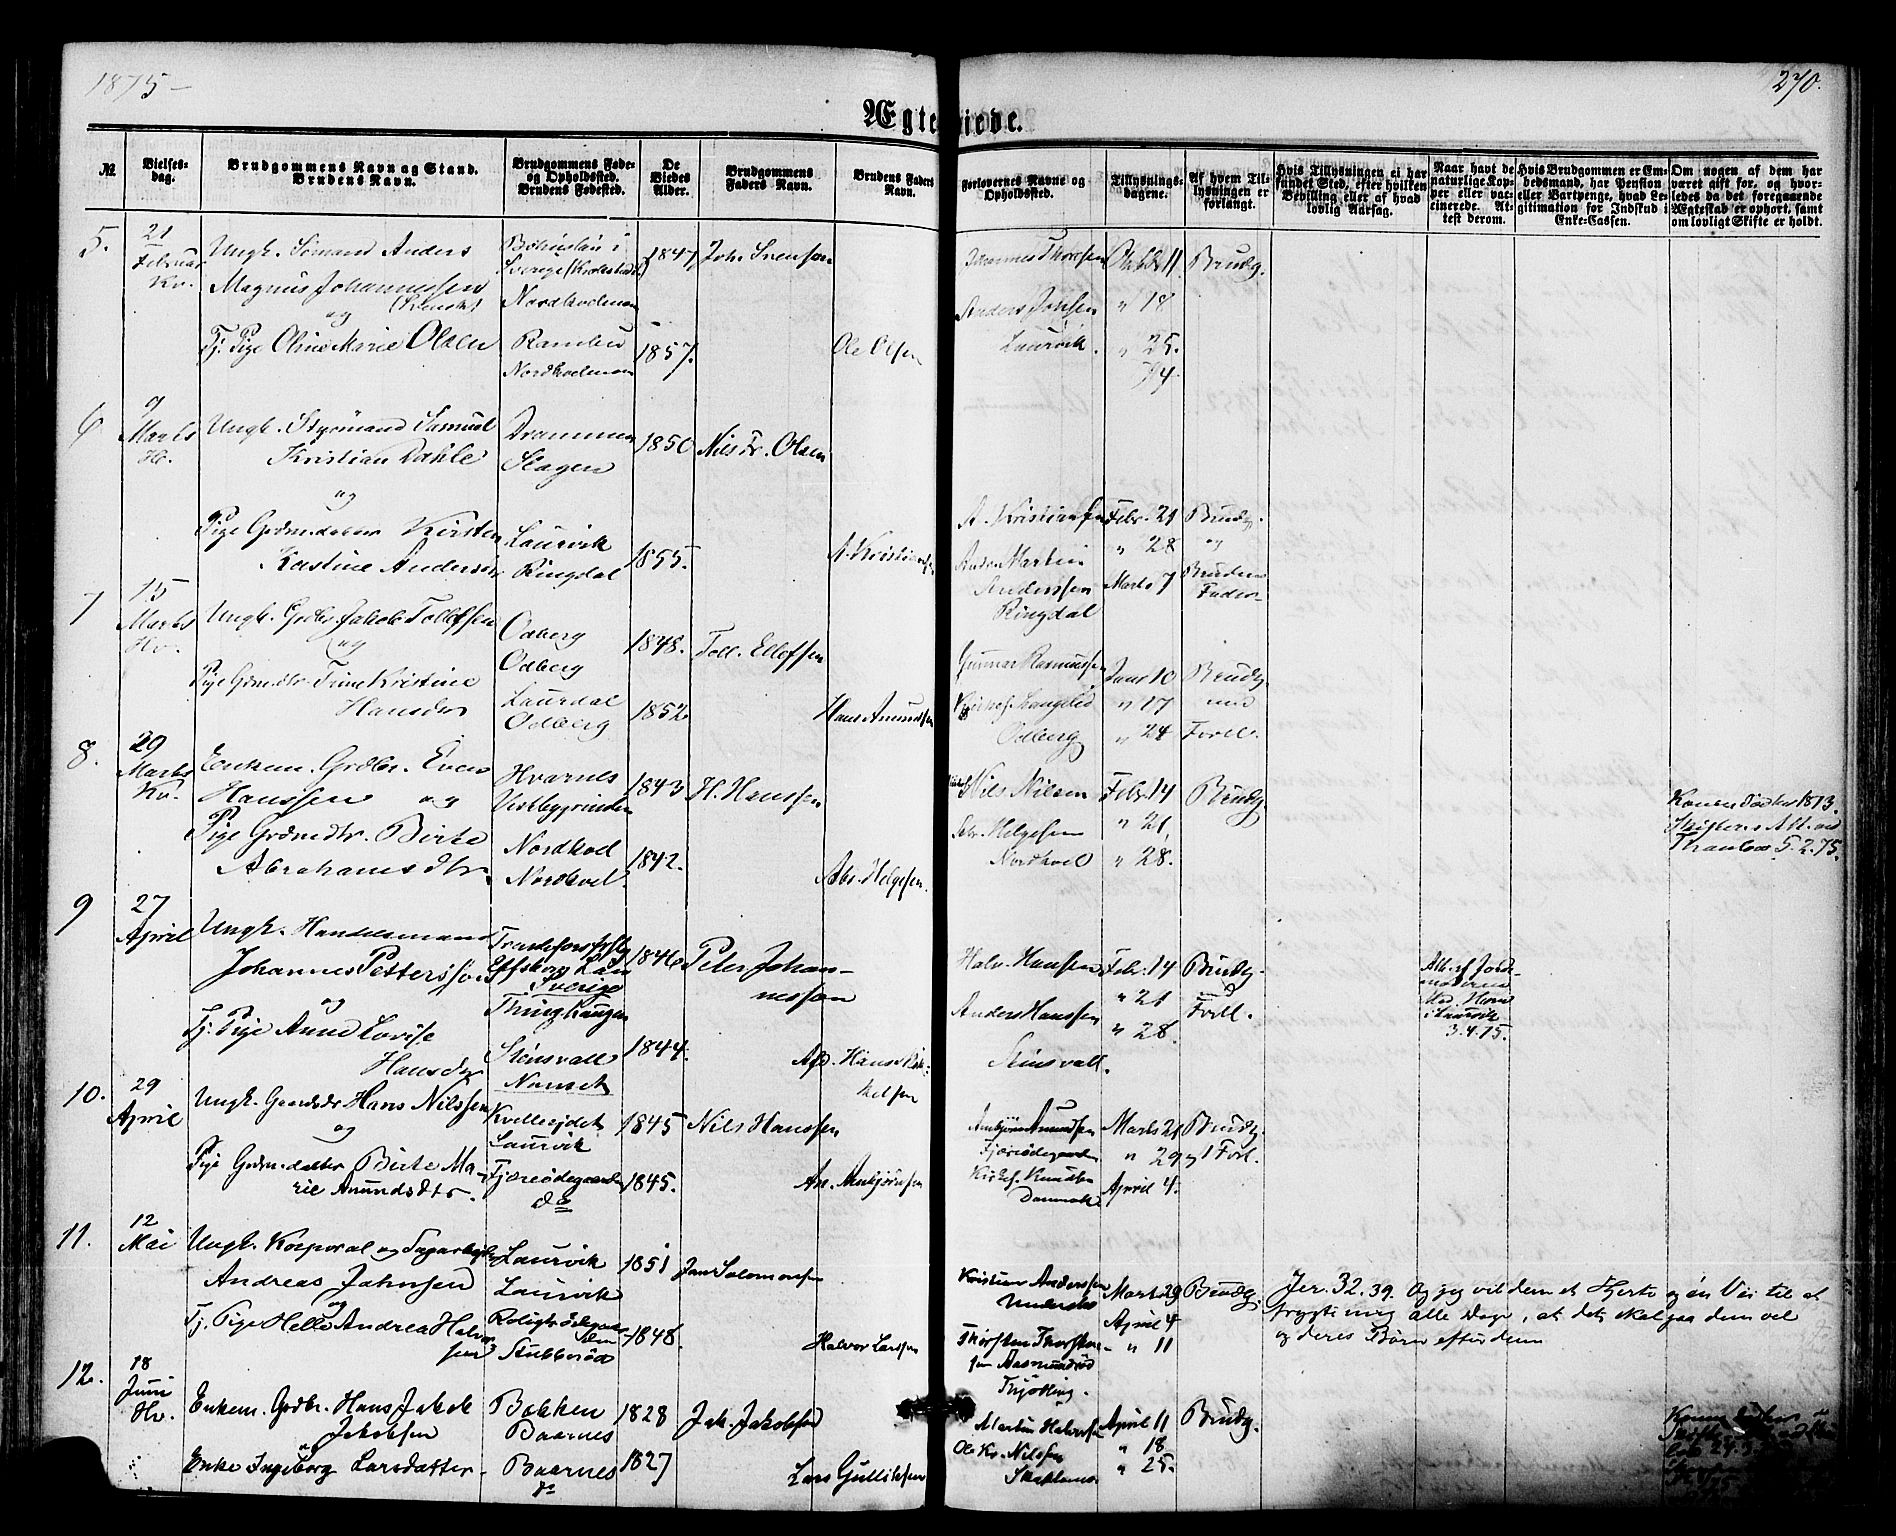 1875 –
270.
Ægteviede.
№
Vielses-
dag.
Brudgommens Navn og Stand.
Brudens Navn.
Brudgommens Føde-
og Opholdssted.
Brudens Fødested.
De
Viedes
Alder.
Brudgommens
Faders Navn.
Brudens Faders
Navn.
Forlovernes Navne og
Opholdssted.
Tillysnings-
dagene.
Af hvem Til-
lysningen er
forlangt.
Hvis Tillysningen ei har
fundet Sted, efter hvilken
Bevilling eller af hvad
lovlig Aarsag.
Naar havt de
naturlige Kop-
per eller vac-
cinerede. At-
test derom.
Hvis Brudgommen er Em-
bedsmand, har Pension
eller Vartpenge, hvad Le-
gitimation for Indskud i
Enke-Cassen.
Om nogen af dem har
været gift før, og hvor-
ledes da det foregaaende
Ægteskab er ophørt, samt
om lovligt Skifte er holdt.
5.
21
Februar
Kv.
Ungk. Sømand Anders
Magnus Johannessen
(Svensk)
og
Tj. Pige Oline Marie Olsen
Bohuslän i
Sverige
Nordkodmen
Ramlu
Nordkodmen
1847
1857.
Joh. Svenson
Ole Olsen
Johannes Thorsen
Anders Jonsen
Laurvik.
Oktbr 11
" 18
" 25.
74.
Brudg.
6
9
Marts
H.
Ungk. Styrmand Samuel
Kristian Dahle
og
Pige Grdmdatter Kirsten
Kastine Andersdtr
Drammen
Slagen
Laurvik
Ringdal
1850
1855.
Nils Fr. Olsen
A. Kristiansen
A. Kristiansen
Andr. Martin
Anderssen
Ringdal
Febr. 21
" 28
Marts 7
Brudg.
og
Brudens
Fader
7
15
Marts
Hv.
Ungk. Grdbr. Jakob Tollefsen
og
Pige Grdmdtr Trine Kristine
Hansdtr
Odberg
Odberg
Laurdal
Odberg
1848.
1852
Toll. Ellefsen
Hans Amundsen
Gunnar Rasmussen
Langelid
Odberg
Janr 10
" 17
" 24
Brudg.
med
Forl.
8.
29
Marts
Kv.
Enkem. Grdbr. Even
Hanssen og
Pige Grdmdtr. Birte
Abrahamsdtr.
Hvarnes
Vestbygrinden
Nordkvel
Nordkvel.
1843
1842.
H. Hanssen
Abr. Helgesen.
Nils Nilsen
Helgesen
Nordkvel
Febr. 14
" 21,
" 28.
Brudg
Konen død 1873.
Skifters Att. ved
5.2.75.
9
27
April
Ungk. Handelsmand
Johannes Petterson
og
Tj. Pige Anne Lovise
Hansdtr
Län
Sverige
Thinghaugen
Stensvall
Nanset
1846
1844.
Peter Johan-
nesson
Hans
kelsen
Halv. Hansen
Anders Hanssen
Stensvall.
Febr. 14
" 21
" 28.
Brudg.
og
Forl.
Att. af Jord-
moderen
Mad. Horn
i Laurvik
3.4.75.
10.
29
April
Ungk. Hans Nilssen
og
Pige Grdmdatter Birte Ma-
rie Amundsdtr.
Kvellejdet
Laurvik
Fjæreødegaarden
do
1845
1845.
Nils Hanssen
Am. Ambjørnsen
Ambjørn Amundsen
Fjæreødegaarden
Knudsen
Danmark
Marts 21
" 29
April 4.
Brudg.
og Forl.
11.
12
Mai
Ungk. Korporal og Sagarbejder
Andreas Jahnsen
og
Tj. Pige Helle Andrea Halvor
sen
Laurvik
Laurvik
Roligh. ødegaar
den
Stubberød
1851
1848.
Jan Salomonsen
Halvor Larssen
Kristian Anderssen
Thorsten Thorsten-
sen Aasmundrød
Thjølling.
Marts 29
April 4
" 11
Brudg.
Jer. 32.39. Og jeg vil dem et Hjerte og en Vei til at
frygte mig alle Dage, at det skal gaa dem vel
og deres Børn efter dem
12.
18
Juni
Hv.
Enkem. Grdbr. Hans Jakob
Jakobsen
og
Enke Ingeborg Larsdatter
Bakken
Baarnes
Baarnes
do
1828
1827
Jak. Jakobsen
Lars Gulliksen
Martin Halvorsen
Ole Kr. Nilssen
April 11
" 18
" 25.
Brudg.